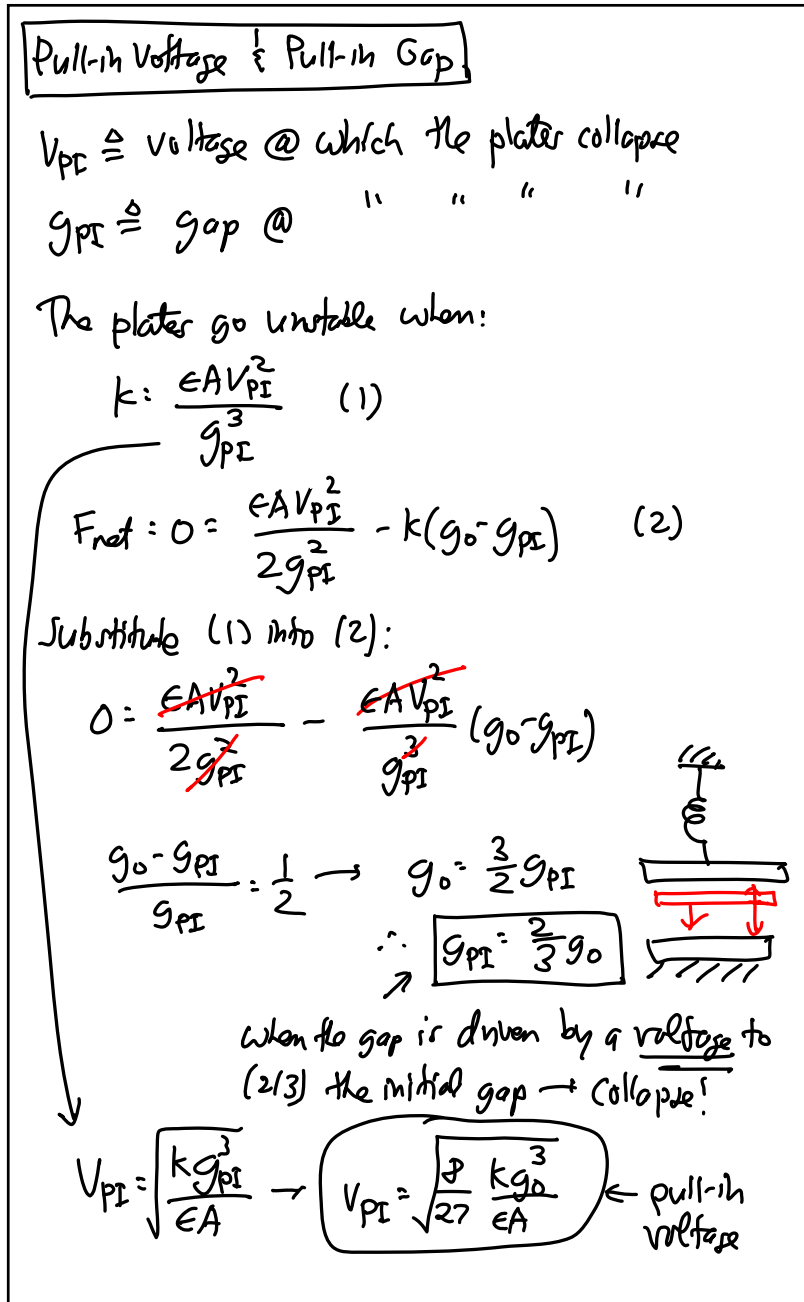 Pull-in Voltage & Pull-in Gap
V_PI ≜ voltage @ which the plates collapse
g_PI ≜ gap @ " " " "
The plates go unstable when:
k = εAV_PI^2 / g_PI^3 (1)
F_net = 0 = εAV_PI^2 / 2g_PI^2 - k(g_0 - g_PI) (2)
Substitute (1) into (2):
0 = εAV_PI^2 / 2g_PI^2 - εAV_PI^2 / g_PI^3 (g_0 - g_PI)
(g_0 - g_PI) / g_PI = 1/2 → g_0 = 3/2 g_PI
∴ g_PI = 2/3 g_0
when the gap is driven by a voltage to
(2/3) the initial gap → collapse!
V_PI = √(k g_PI^3 / εA) → V_PI = √(8/27 k g_0^3 / εA) ← pull-in
voltage